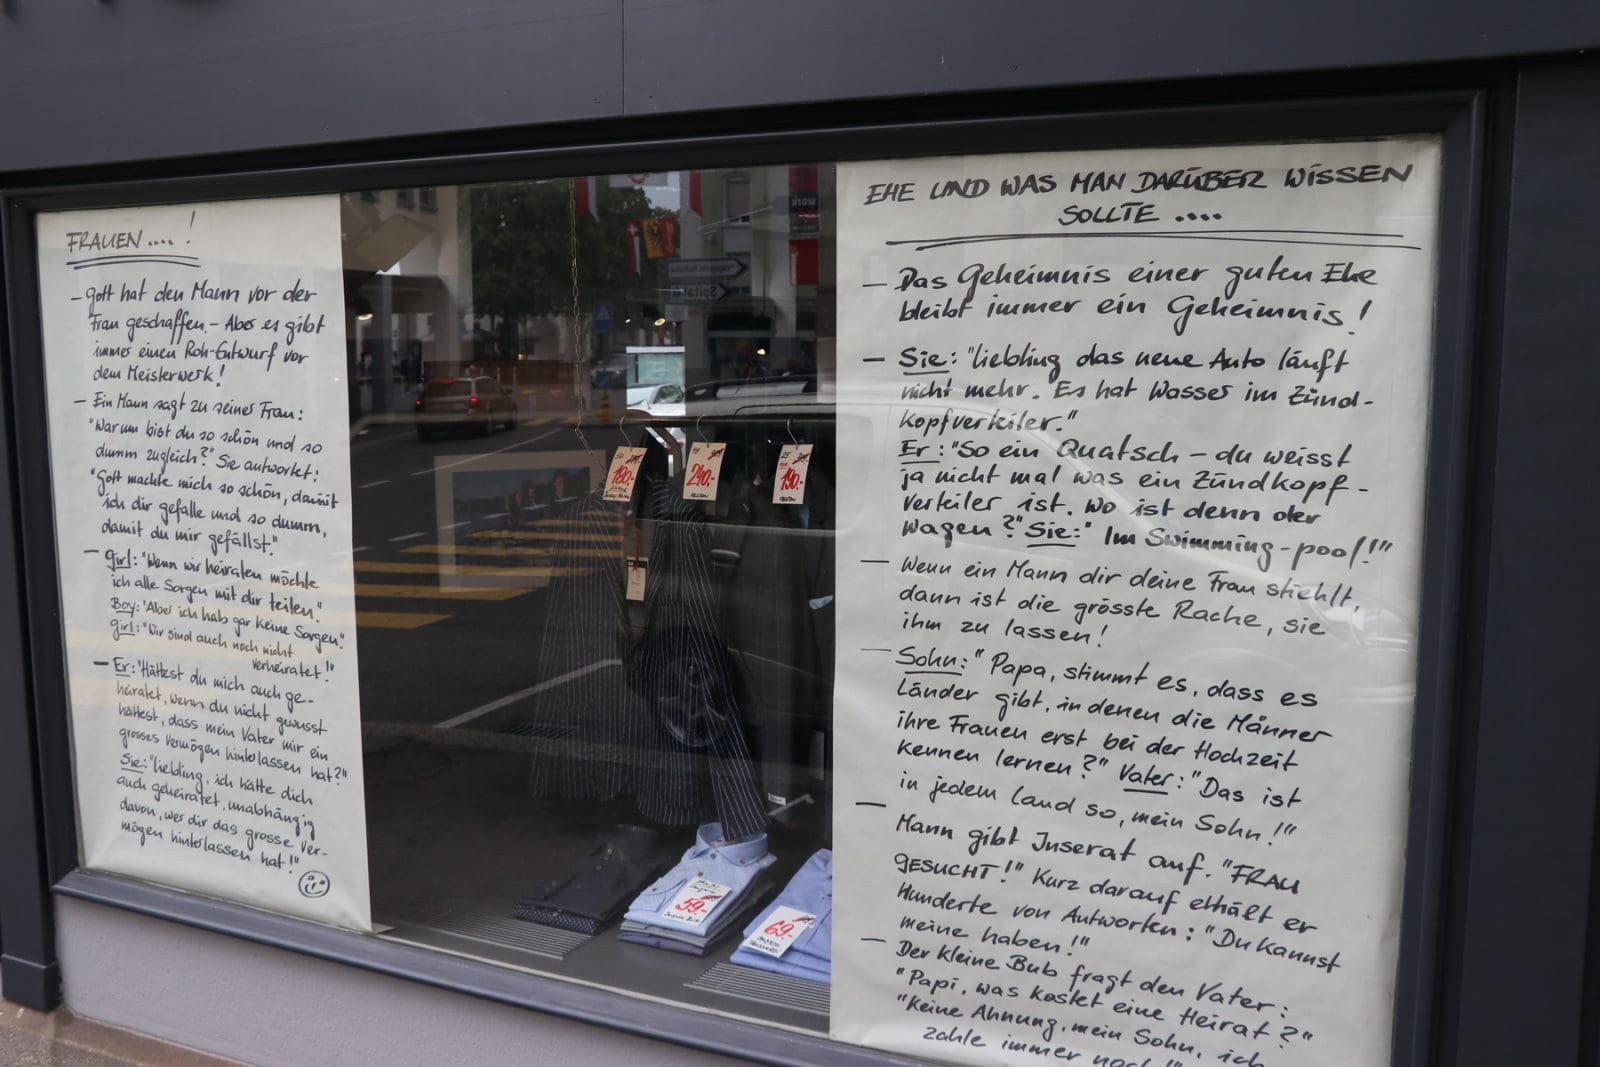 FRAUEN....!
- Gott hat den Mann vor der
Frau geschaffen.- Aber es gibt
immer einen Roh-Entwurf vor
dem Meisterwerk!
- Ein Mann sagt zu seiner Frau:
"Warum bist du so schön und so
dumm zugleich?" Sie antwortet:
"Gott machte mich so schön, damit
ich dir gefalle und so dumm,
damit du mir gefällst."
- Girl: "Wenn wir heiraten möchte
ich alle Sorgen mit dir teilen."
Boy: "Aber ich hab gar keine Sorgen"
Girl: "Wir sind auch noch nicht
verheiratet!"
- Er: "Hättest du mich auch ge-
heiratet, wenn du nicht gewusst
hättest, dass mein Vater mir ein
grosses Vermögen hinterlassen hat?"
Sie: "Liebling, ich hätte dich
auch geheiratet, unabhängig
davon, wer dir das grosse Ver-
mögen hinterlassen hat!"
Spital
work
180.-
240.-
190.-
59.-
69.-
EHE UND WAS MAN DARÜBER WISSEN
SOLLTE ....
- Das Geheimnis einer guten Ehe
bleibt immer ein Geheimnis!
- Sie: "Liebling das neue Auto läuft
nicht mehr. Es hat Wasser im Zünd-
kopfverteiler."
Er: "So ein Quatsch - du weisst
ja nicht mal was ein Zündkopf-
verteiler ist. Wo ist denn der
Wagen?" Sie: "Im Swimming-pool!"
- Wenn ein Mann dir deine Frau stiehlt,
dann ist die grösste Rache, sie
ihm zu lassen!
- Sohn: "Papa, stimmt es, dass es
Länder gibt, in denen die Männer
ihre Frauen erst bei der Hochzeit
kennen lernen?" Vater: "Das ist
in jedem Land so, mein Sohn!"
- Mann gibt Inserat auf. "FRAU
GESUCHT!" Kurz darauf erhält er
Hunderte von Antworten: "Du kannst
meine haben!"
- Der kleine Bub fragt den Vater:
"Papi, was kostet eine Heirat?"
"Keine Ahnung, mein Sohn, ich
zahle immer noch!"